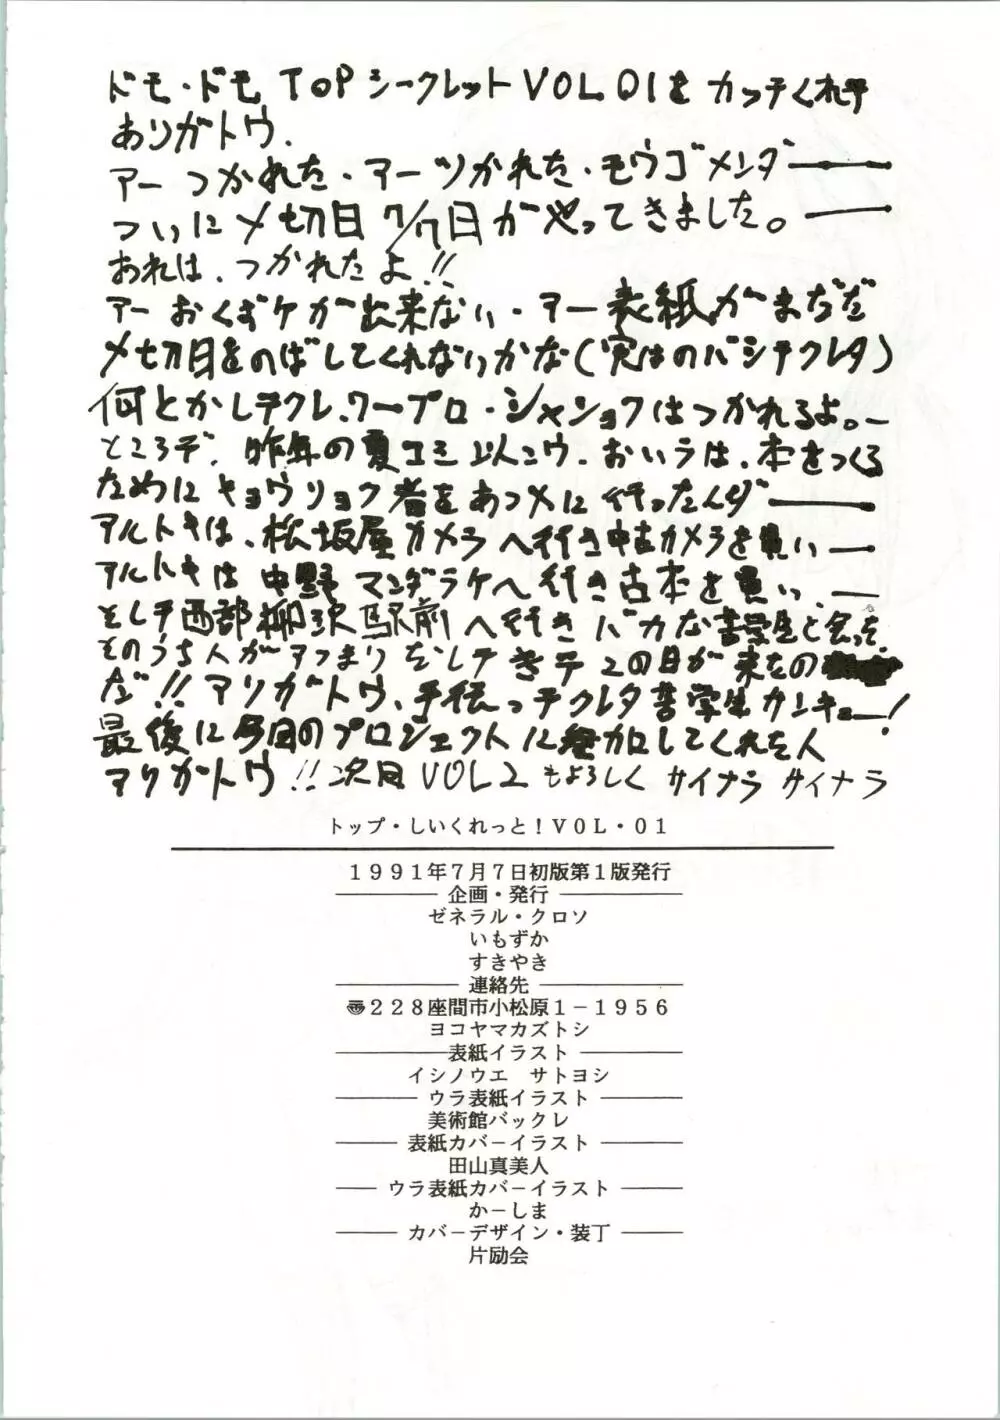 ドモ・ドモ TOPシークレットVOL.01をカッテくれテ
ありガトウ.
アーつかれた・アーツかれた・モウゴメンダ――
ついに〆切日7/7日がやってきました。――
おれは、つかれたよ!!
アーおくずケが出来ない・アー表紙がまだだ
〆切日をのばしてくれないかな(実はのバシテクレタ)
何とかしテクレ.ワープロ・シャショクはつかれるよ。―
ところデ、昨年の夏コミ以ニウ.おいラは、本をつくる
ためにキョウリョク者をあつメに行ったんダ――
アルトキは、松坂屋カメラへ行き中古カメラを買い―
アルトキは中野マンダラケへ行き古本を買い、―
そしテ西部柳沢駅前へ行きバカな苦学生と会った
そのうち人がアつまりをしテきテこの日が来たの
だ!!アリガトウ、手伝ッテクレタ苦学生カンキョー!
最後に今回のプロジェクトに参加してくれた人
アリガトウ!!次回VOL2もよろしくサイナラ サイナラ
トップ・しいくれっと!VOL・01
1991年7月7日初版第1版発行
企画・発行
ゼネラル・クロソ
いもずか
すきやき
連絡先
〠228座間市小松原1-1956
ヨコヤマカズトシ
表紙イラスト
イシノウエ サトヨシ
ウラ表紙イラスト
美術館バックレ
表紙カバーイラスト
田山真美人
ウラ表紙カバーイラスト
かーしま
カバーデザイン・装丁
片励会